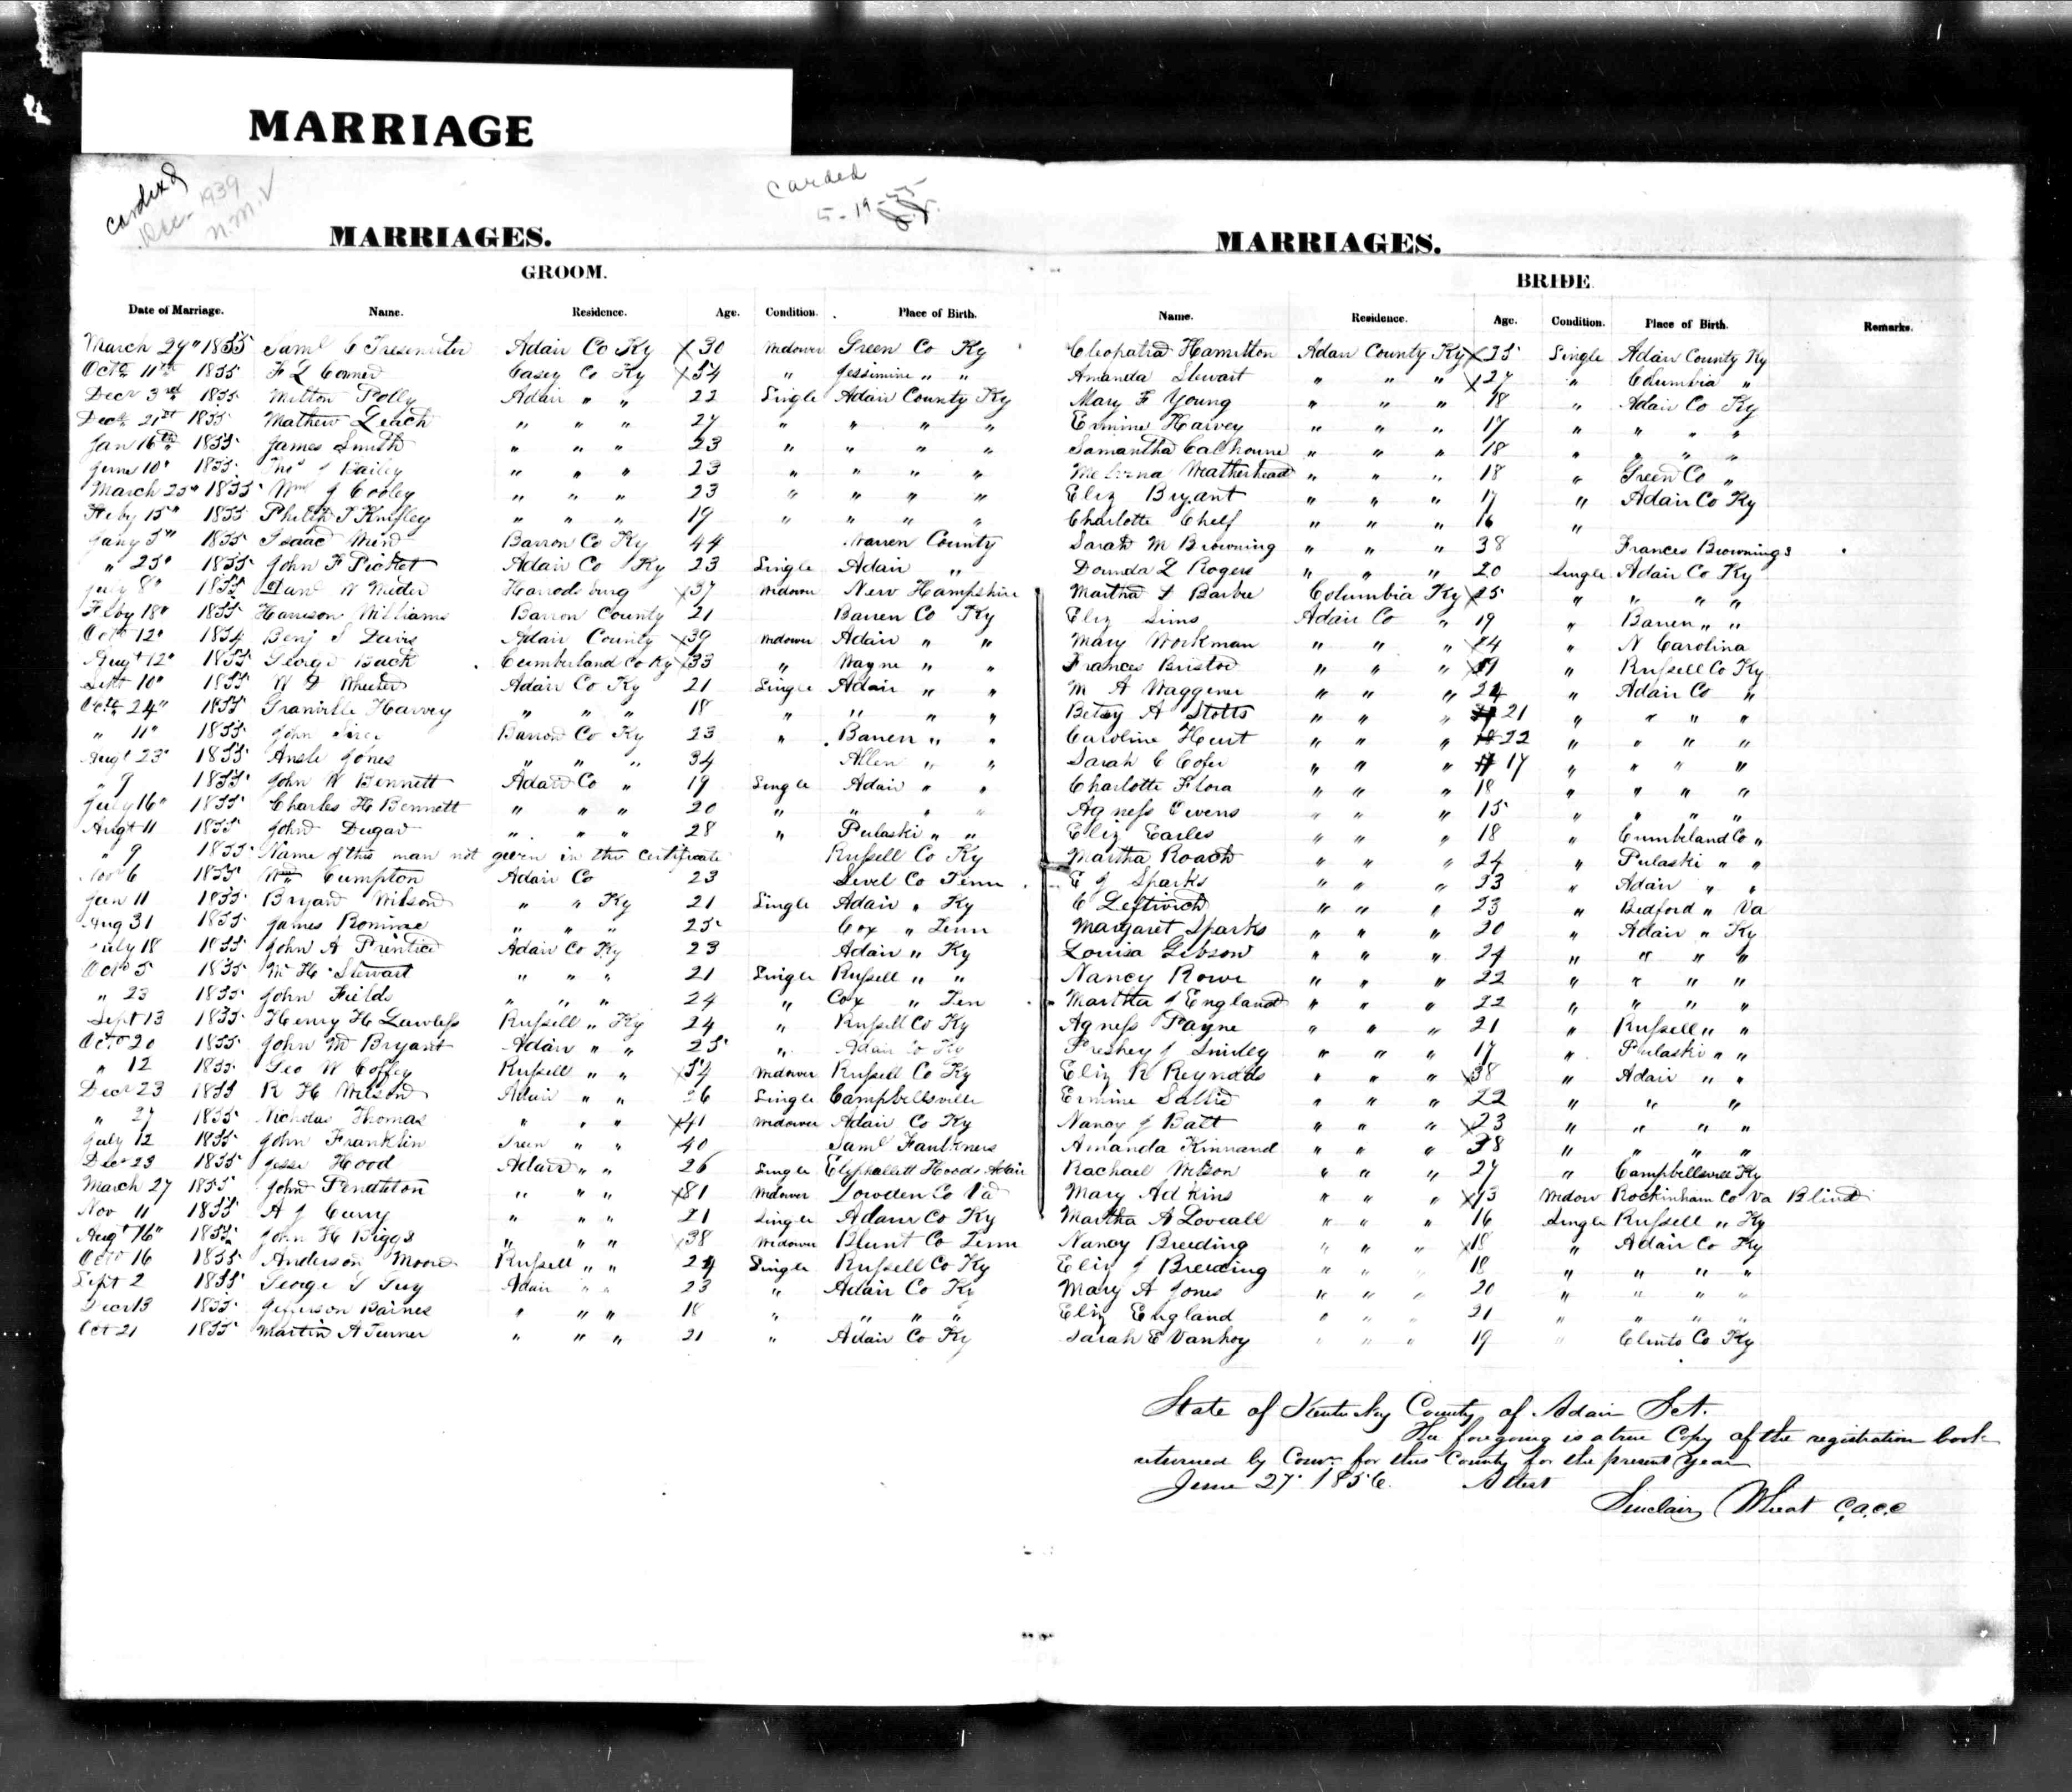 MARRIAGE
Carded
Dec - 1939
N.M.V
Carded
5-19-55
MARRIAGES.
GROOM.
Date of Marriage. Name. Residence. Age. Condition. Place of Birth.
MARRIAGES.
BRIDE.
Name. Residence. Age. Condition. Place of Birth. Remarks.
March 29" 1855 Saml C Adair Co Ky X 30 Widower Green Co Ky Cleopatra Hamilton Adair County Ky X 35 Single Adair County Ky
Octo 11th 1855 F L Casey Co Ky X 54 " Jessimine " " Amanda Stewart " " " X 27 " Columbia "
Decr 3rd 1855 Milton Polly Adair " " 22 Single Adair County Ky Mary F Young " " " 18 " Adair Co Ky
Decr 21st 1855 Mathew Leach " " " 27 " " " " Ermine Harvey " " " 17 " " " "
Jan 16th 1855 James Smith " " " 23 " " " " Samantha Calhoune " " " 18 " " " "
June 10" 1855 Thos J Bailey " " " 23 " " " " Weatherhead " " " 18 " Green Co "
March 25" 1855 Wm J Cooley " " " 23 " " " " Eliz Bryant " " " 17 " Adair Co Ky
Feby 15" 1855 Philip T Knifley " " " 19 " " " " Charlotte Chelf " " " 16 "
Jany 5" 1855 Isaac Barron Co Ky 44 Warren County Sarah M Browning " " " 38 Frances Brownings
" 25" 1855 John F Picket Adair Co Ky 23 Single Adair " L Rogers " " " 20 Single Adair Co Ky
July 8" 1855 W Harrodsburg X 37 Widower New Hampshire Martha Barbee Columbia Ky X 25 " " " "
Feby 18" 1855 Harrison Williams Barron County 21 Barren Co Ky Eliz Sims Adair Co " 19 " Barren " "
Octo 12" 1854 Benj S Adair County X 39 Widower Adair " " Mary Workman " " " X 24 " N Carolina
Augt 12" 1855 George Back Cumberland Co Ky X 33 " Wayne " " Frances " " " X " Russell Co Ky
Sept 10" 1855 Wheeler Adair Co Ky 21 Single Adair " " M A Waggener " " " 24 " Adair Co "
Octo 24" 1855 Granville Harvey " " " 18 " " " " Betsy A Stotts " " " 21 " " " "
" 11" 1855 John Barron Co Ky 23 " Barren " " Caroline Hurt " " " 22 " " " "
Augt 23" 1855 Ansle Jones " " " 34 Allen " " Sarah C Cofer " " " 17 " " " "
" 9 1855 John W Bennett Adair Co " 19 Single Adair " " Charlotte Flora " " " 18 " " " "
July 16" 1855 Charles H Bennett " " " 20 " " " " Agness Owens " " " 15 " " " "
Augt 11 1855 John Dugar " " " 28 " Pulaski " " Eliz Earles " " " 18 " Cumbeland Co "
" 9 1855 Name of this man not given in the Certificate Russell Co Ky Martha Roach " " " 24 " Pulaski " "
Nov 6 1855 Wm Cumpton Adair Co 23 Co Tenn E J Sparks " " " 33 " Adair " "
Jan 11 1855 Bryant Wilson " " Ky 21 Single Adair " Ky C Leftwich " " " 23 " Bedford " Va
Aug 31 1855 James Romine " " " 25 Cox " Tenn Margaret Sparks " " " 20 " Adair " Ky
July 18 1855 John A Prentice Adair Co Ky 23 Adair " Ky Louisa Gibson " " " 24 " " " "
Octo 5 1855 W H Stewart " " " 21 Single Russell " " Nancy Rowe " " " 22 " " " "
" 23 1855 John Fields " " " 24 " Cox " Ten Martha J England " " " 22 " " " "
Sept 13 1855 Henry H Lawless Russell " Ky 24 " Russell Co Ky Agness Payne " " " 21 " Russell " "
Octo 20 1855 John M Bryant Adair " " 25 " Adair Co Ky J " " " 17 " Pulaski " "
" 12 1855 Geo W Coffey Russell " " X 54 Widower Russell Co Ky Eliz R Reynolds " " " X 38 " Adair " "
Decr 23 1855 R H Wilson Adair " " 26 Single Campbellsville Ermine Sallie " " " 22 " " "
" 27 1855 Nicholas Thomas " " " X 41 Widower Adair Co Ky Nancy J Batt " " " X 23 " " " "
July 12 1855 John Franklin Green " " 40 Saml Faulkners Amanda Kinnard " " " 38 " " " "
Decr 23 1855 Jesse Hood Adair " " 26 Single Eliphallett Hoods Adair Rachael Wilson " " " 27 " Campbellsville Ky
March 27 1855 John Pendleton " " " X 81 Widower Lowden Co Va Mary Adkins " " " X 73 Widow Rockinham Co Va Blind
Nov 11 1855 A J Curry " " " 21 Single Adair Co Ky Martha A Loveall " " " 16 Single Russell " Ky
Augt 16" 1855 John H Biggs " " " X 38 Widower Blunt Co Tenn Nancy Breeding " " " X 18 " Adair Co Ky
Octo 16 1855 Anderson Moore Russell " " 24 Single Russell Co Ky Eliz J Breeding " " " 18 " " " "
Sept 2 1855 George Adair " " 23 " Adair Co Ky Mary A Jones " " " 20 " " " "
Decr 13 1855 Jefferson Barnes " " " 18 " " " " Eliz England " " " 21 " " " "
Oct 21 1855 Martin A Turner " " " 21 " Adair Co Ky Sarah E Vanhoy " " " 19 " Clinto Co Ky
State of Kentucky County of Adair Sct.
The foregoing is a true Copy of the registration book
returned by Comr for this County for the present year
June 27 1856. Attest
Sinclair Wheat C.A.C.C